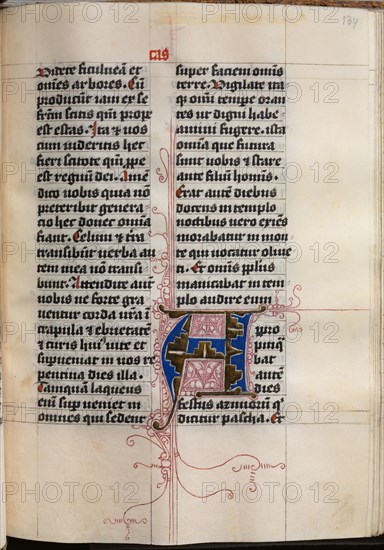 134
cas
Videte ficulneā et
om̄es arbores. Cū
producūt iam ex se
fructū scitis qm̄ prope
est estas. Ita ⁊ vos
cum videritis hec
fieri scitote qm̄ ꝓpe
est regnū dei. Amē
dico vobis quia nō
preteribit genera
cio hec donec om̄ia
fiant. Celum ⁊ t̄ra
transibūt verba au
tem mea nō transi
bunt. Attendite autē
vobis ne forte gra
ventur corda vr̄a ī
crapula ⁊ ebrietate
⁊ curis huiꝰ vite et
supveniat in vos re
pentina dies illa.
Tamquā laqueus
enim supveniet in
omnes qui sedent
super faciem om̄is
terre. Vigilate itaq
om̄i tempe oran
tes ut digni habe
amini fugere. ista
omnia que futura
sunt vobis ⁊ stare
ante filiū hominis.
Erat autē diebus
docens in templo
noctibus vero exiēs
morabatur in mon
te qui vocatur olive
ti. Et omīs pplūs
manicabat in tem
plo audire eum
Appro
pinq
bat
autē
dies
festus azimorū qͥ
dicitur pascha. Et
PHOTO 12